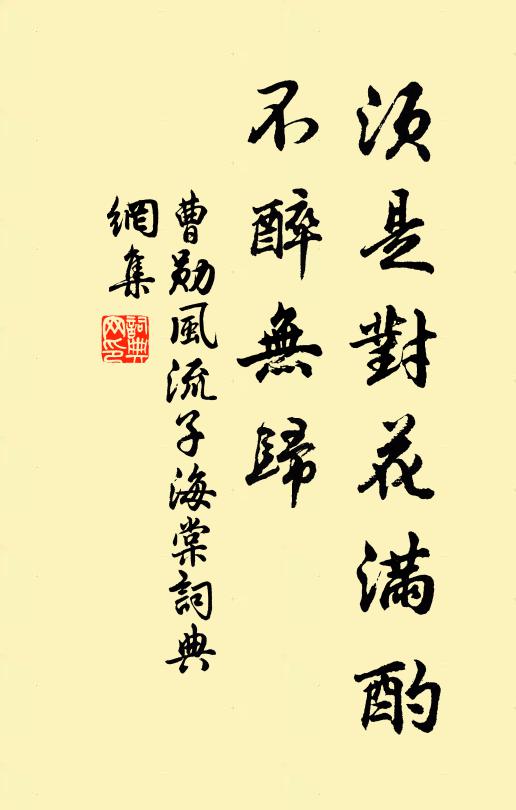 须是對花滿酌
不醉無歸
曹勛風流子海棠詞典
網集
詞典
网印